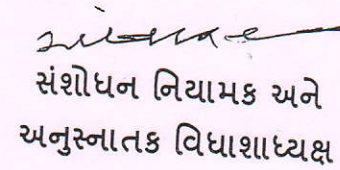 સંશોધન નિયામક અને
અનુસ્નાતક વિધાશાધ્યક્ષ